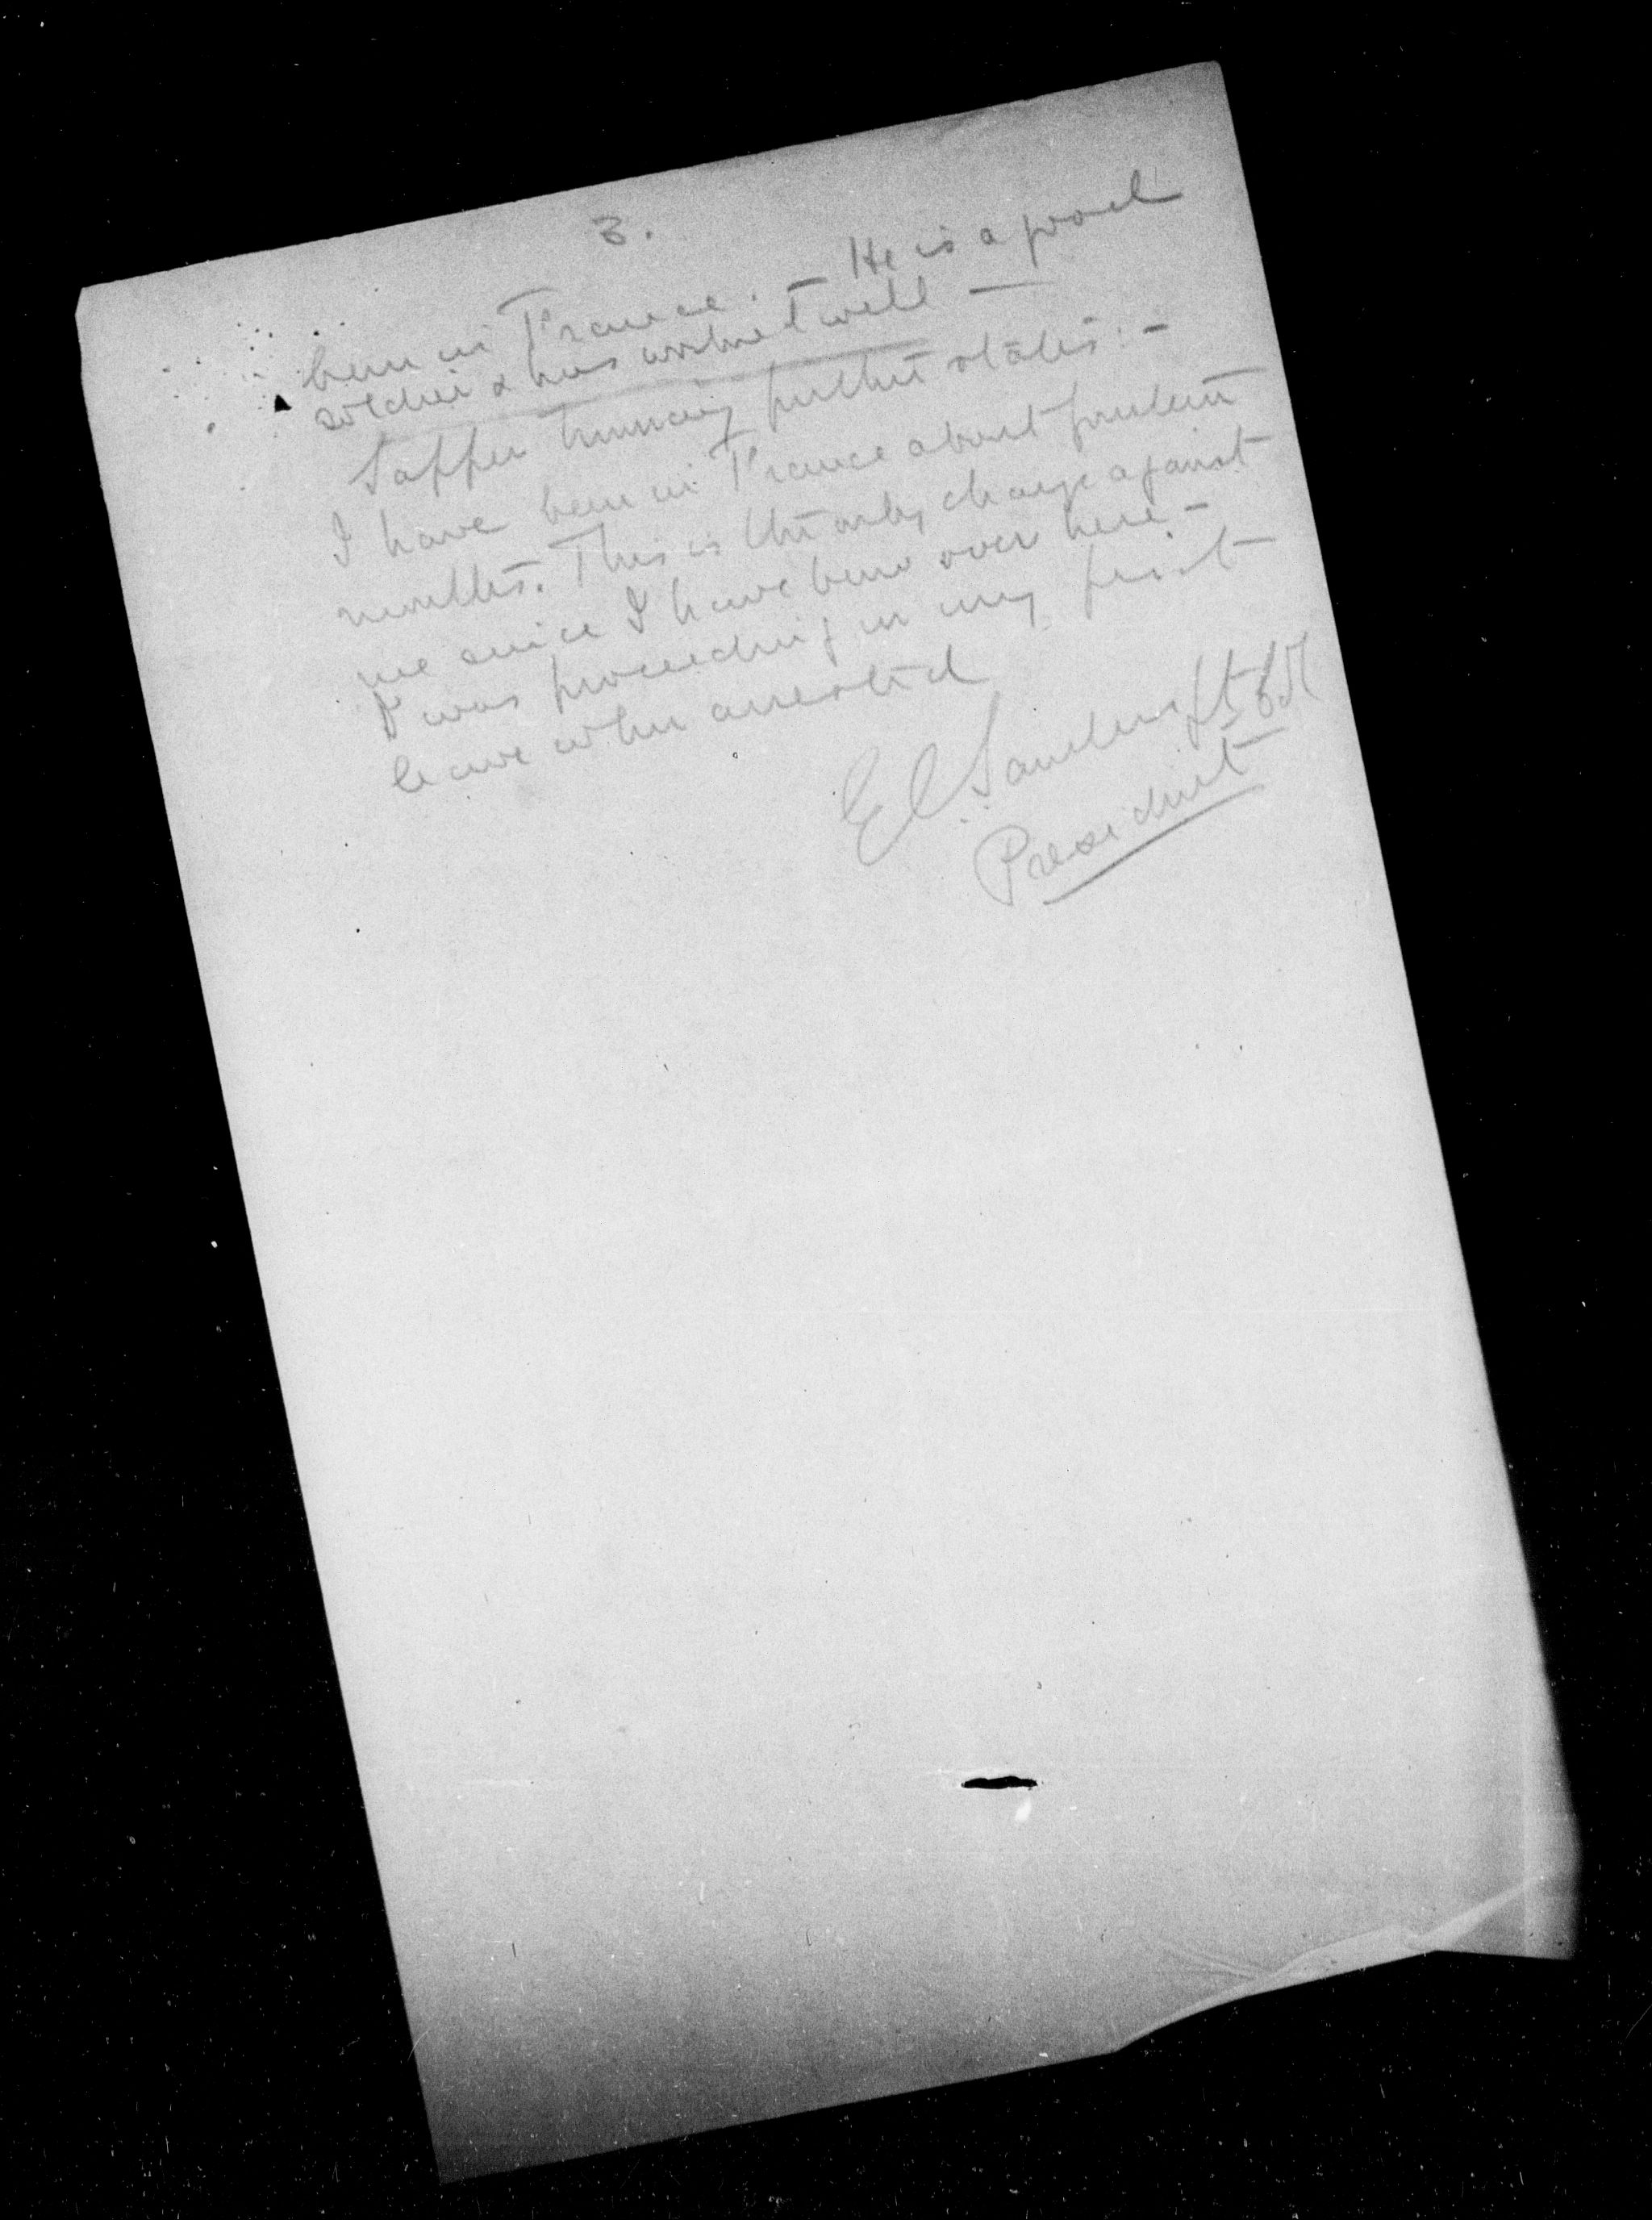 3.
been in France. — He is a good
soldier & has worked well —
Sapper further states: -
I have been in France about fourteen
months. This is the only charge against
me since I have been over here -
I was proceeding on my first
leave when arrested
E C
President